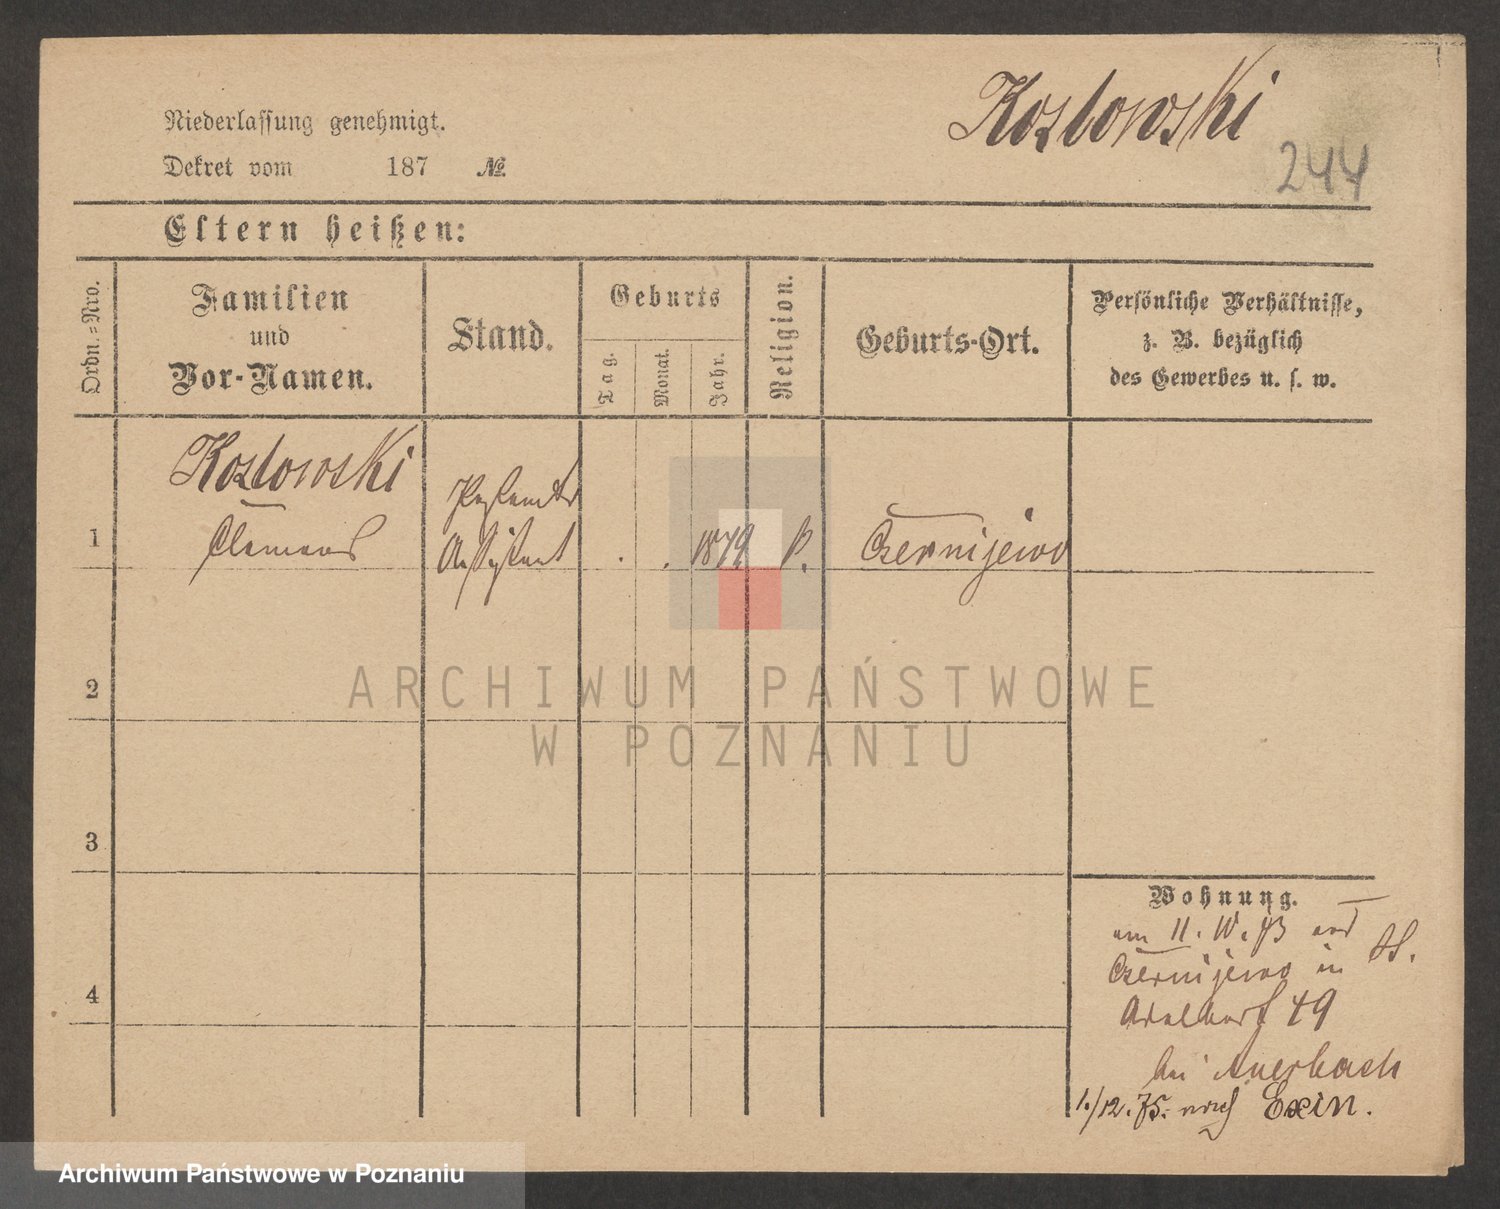 Kozlowski
244
Niederlassung genehmigt.
Dekret vom 187 №
Eltern heißen:
Ordn.=Nro.
Familien
und
Vor-Namen.
Stand.
Geburts
Tag.
Monat.
Jahr.
Religion.
Geburts-Ort.
Persönliche Verhältnisse,
z. B. bezüglich
des Gewerbes u. s. w.
Kozlowski
Clemens
1
Assistent
Czernijewo
2
3
4
Wohnung.
am 11. IV. 73
Czernijewo in St.
49
bei Auerbach
1./12. 75. nach Exin.
ARCHIWUM PAŃSTWOWE
W POZNANIU
Archiwum Państwowe w Poznaniu